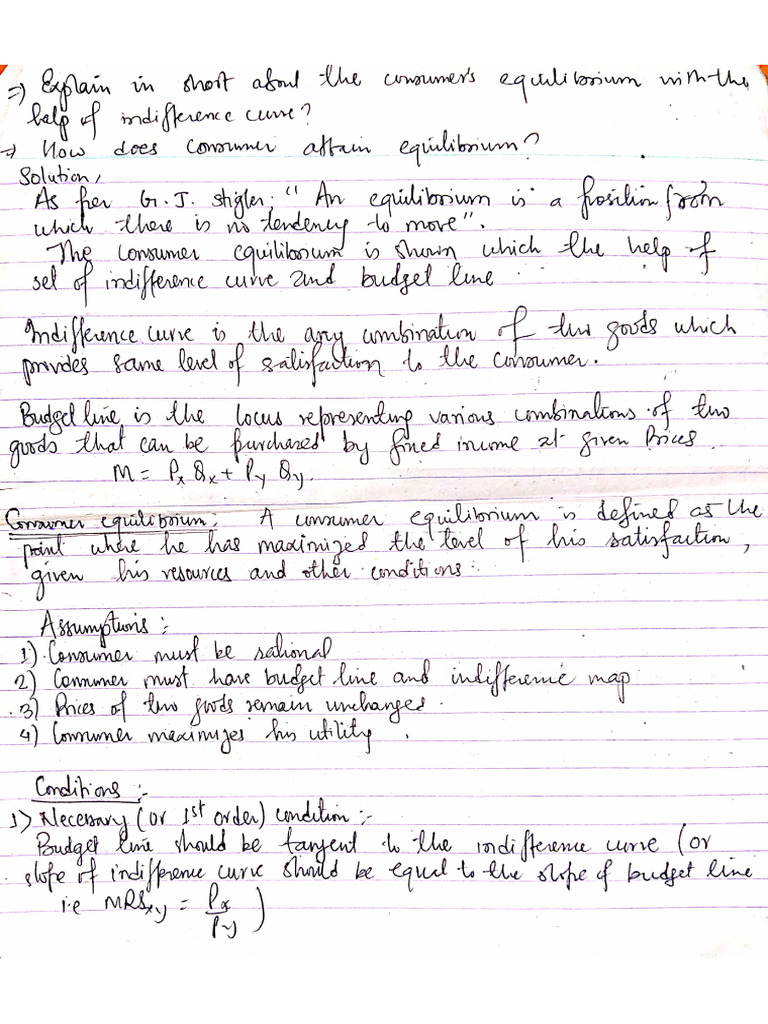 => Explain in short about the consumer's equilibrium with the
help of indifference curve?
=> How does consumer attain equilibrium?
Solution,
As per G. J. Stigler; "An equilibrium is a position from
which there is no tendency to move".
The consumer equilibrium is shown which the help of
set of indifference curve and budget line
Indifference curve is the any combination of two goods which
provides same level of satisfaction to the consumer.
Budget line is the locus representing various combinations of two
goods that can be purchased by fixed income at given Prices.
M = Px Qx + Py Qy.
Consumer equilibrium: A consumer equilibrium is defined as the
point where he has maximized the level of his satisfaction,
given his resources and other conditions.
Assumptions:
1) Consumer must be rational
2) Consumer must have budget line and indifference map
3) Prices of two goods remain unchanged.
4) Consumer maximizes his utility.
Conditions:-
1) Necessary (or 1st order) condition:-
Budget line should be tangent to the indifference curve (or
slope of indifference curve should be equal to the slope of budget line
i.e MRSxy = Px/Py)